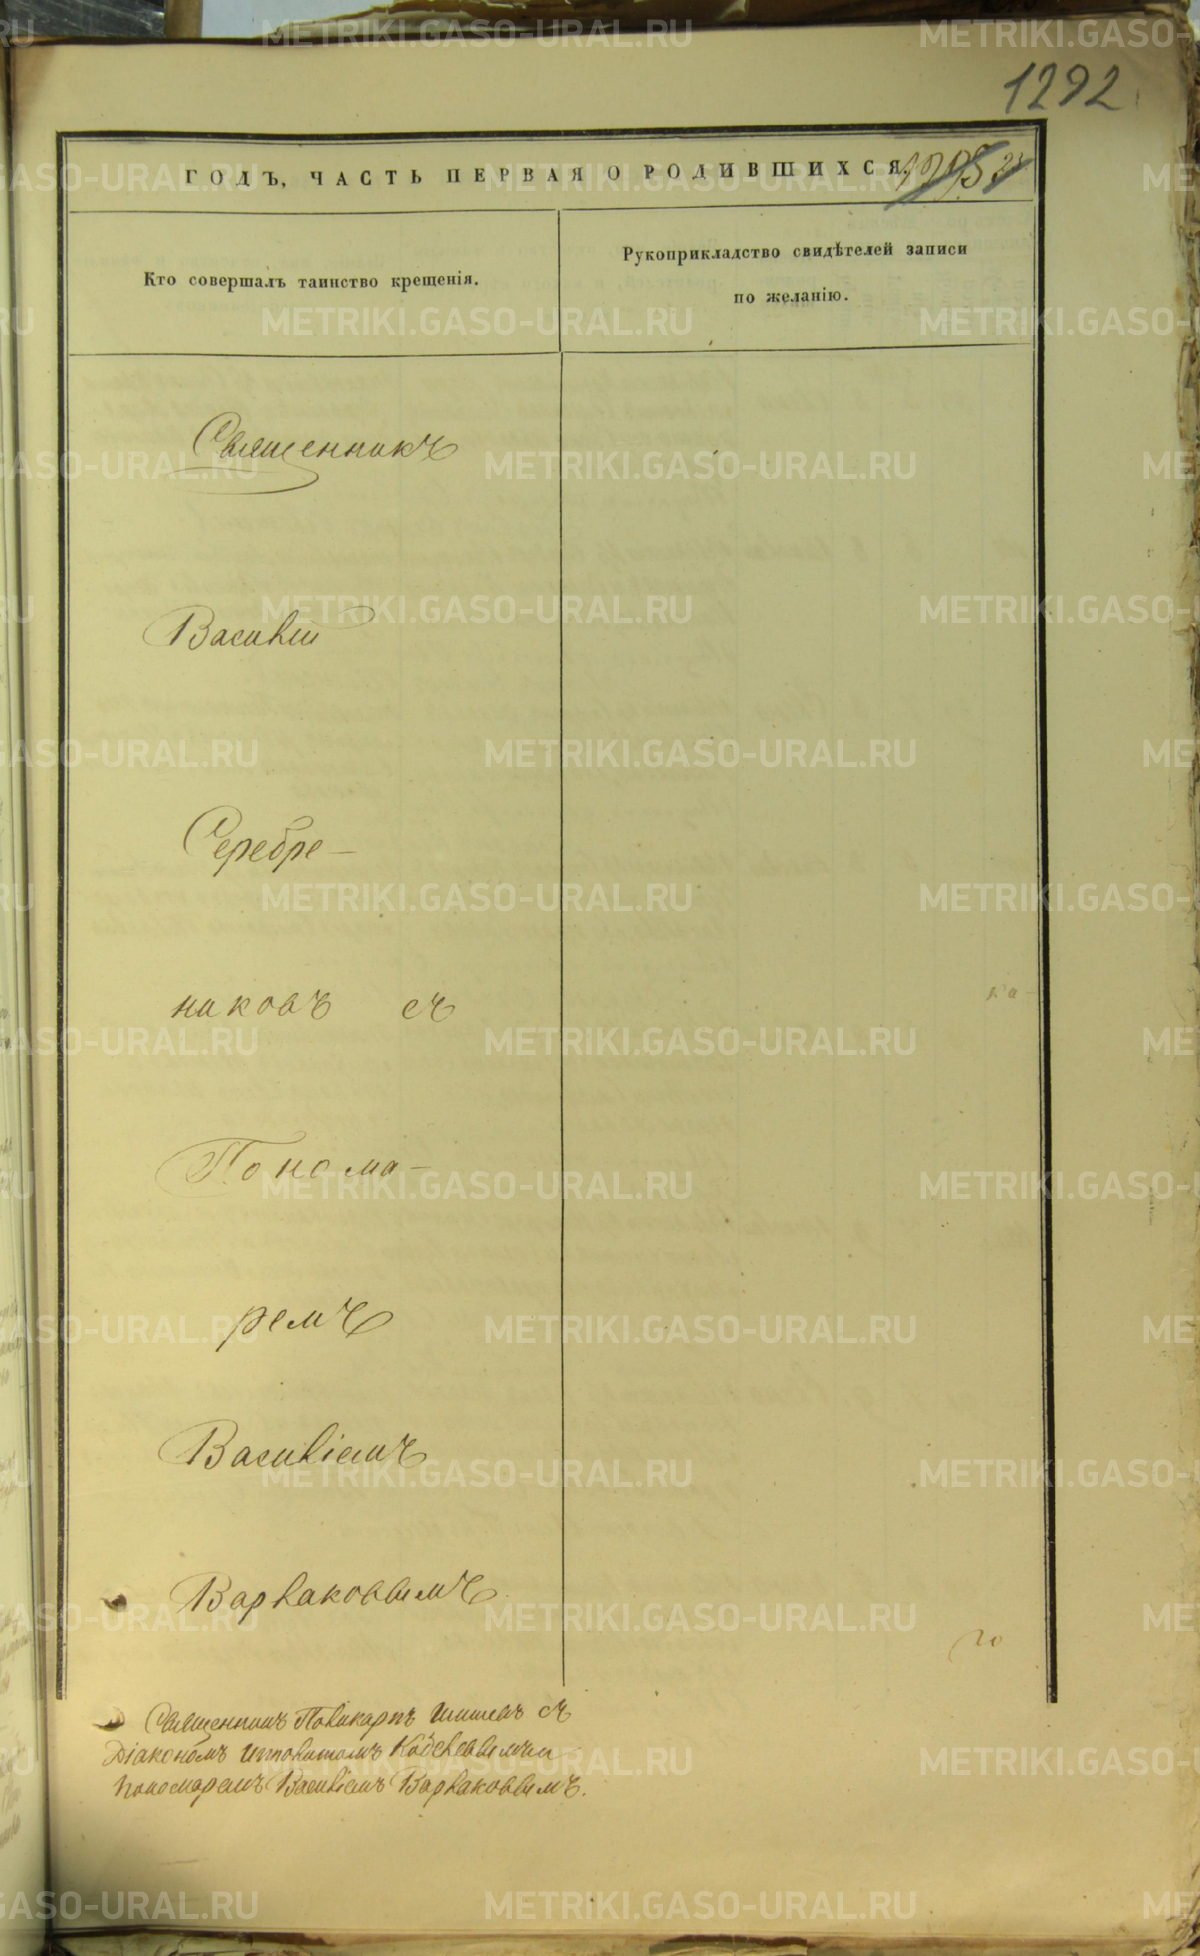 1292
ГОДЪ, ЧАСТЬ ПЕРВАЯ О РОДИВШИХСЯ.
Кто совершалъ таинство крещенія.
Рукоприкладство свидѣтелей записи
по желанію.
Священникъ
Василій
Серебре-
никовъ съ
Понома-
ремъ
Василіемъ
Варлаковымъ.
Священникъ Поликарпъ Шишевъ съ
Діакономъ Ипполитомъ Кобелевымъ и
пономаремъ Василіемъ Варлаковымъ.
ка-
го
METRIKI.GASO-URAL.RU